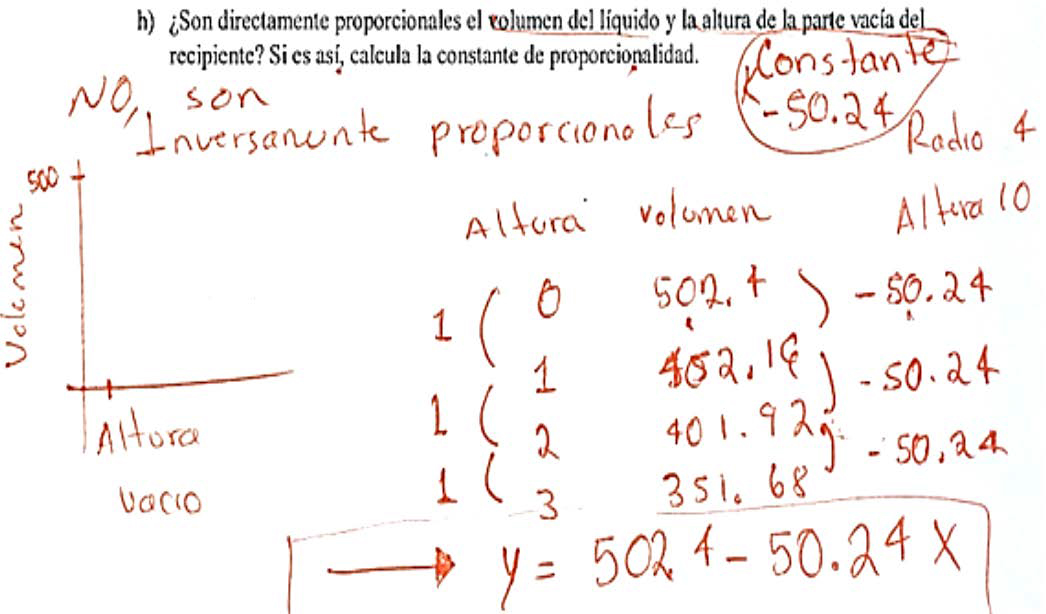 h) ¿Son directamente proporcionales el volumen del líquido y la altura de la parte vacía del
recipiente? Si es así, calcula la constante de proporcionalidad.
Constante
-50.24
NO, son
Inversamente proporcionales
Radio 4
Altura 10
500
Volumen
Altura
vacio
Altura volumen
1 0 502.4 -50.24
1 1 452.16 -50.24
1 2 401.92 -50.24
3 351.68
y = 502.4 - 50.24 X